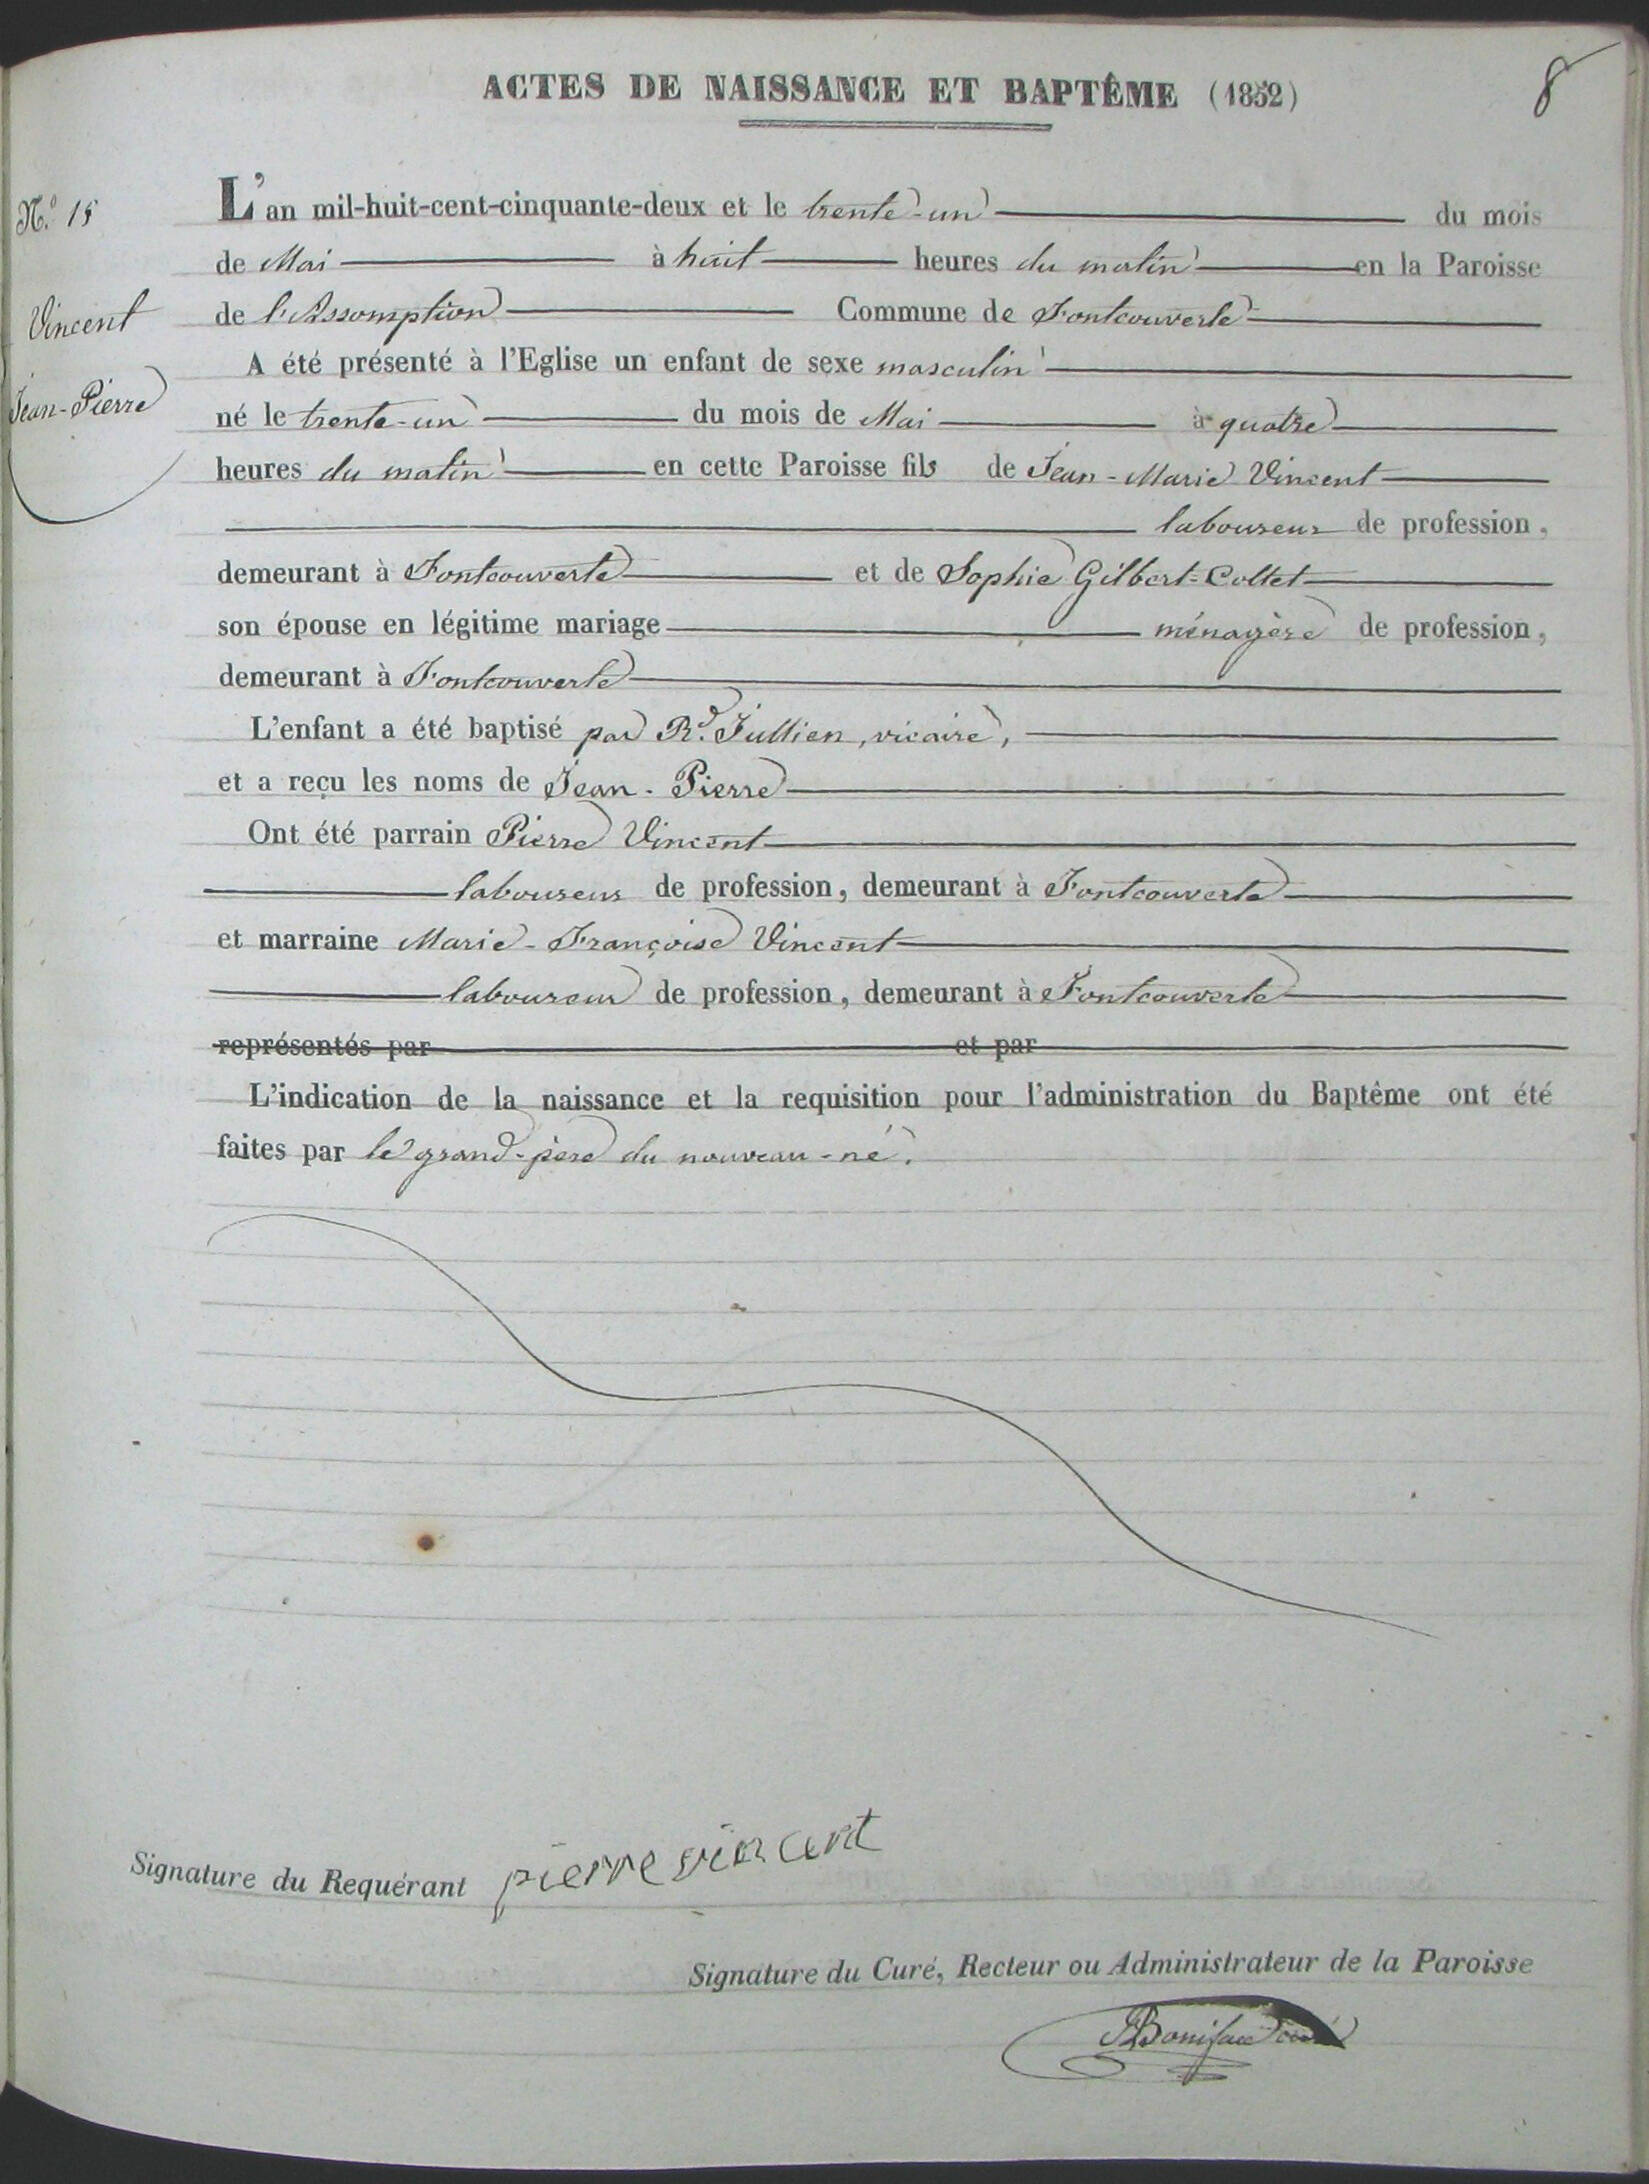 ACTES DE NAISSANCE ET BAPTÊME (1852)
8
N.o 15
Vincent
Jean-Pierre
L'an mil-huit-cent-cinquante-deux et le trente-un du mois
de Mai à huit heures du matin en la Paroisse
de l'Assomption Commune de Fontcouverte
A été présenté à l'Eglise un enfant de sexe masculin
né le trente-un du mois de Mai à quatre
heures du matin en cette Paroisse fils de Jean-Marie Vincent
laboureur de profession,
demeurant à Fontcouverte et de Sophie Gilbert-Collet
son épouse en légitime mariage ménagère de profession,
demeurant à Fontcouverte
L'enfant a été baptisé par Rd. Jullien, vicaire,
et a reçu les noms de Jean-Pierre
Ont été parrain Pierre Vincent
laboureur de profession, demeurant à Fontcouverte
et marraine Marie-Françoise Vincent
laboureur de profession, demeurant à Fontcouverte
représentés par et par
L'indication de la naissance et la requisition pour l'administration du Baptême ont été
faites par le grand-père du nouveau-né.
Signature du Requérant pierre vincent
Signature du Curé, Recteur ou Administrateur de la Paroisse
JBoniface curé